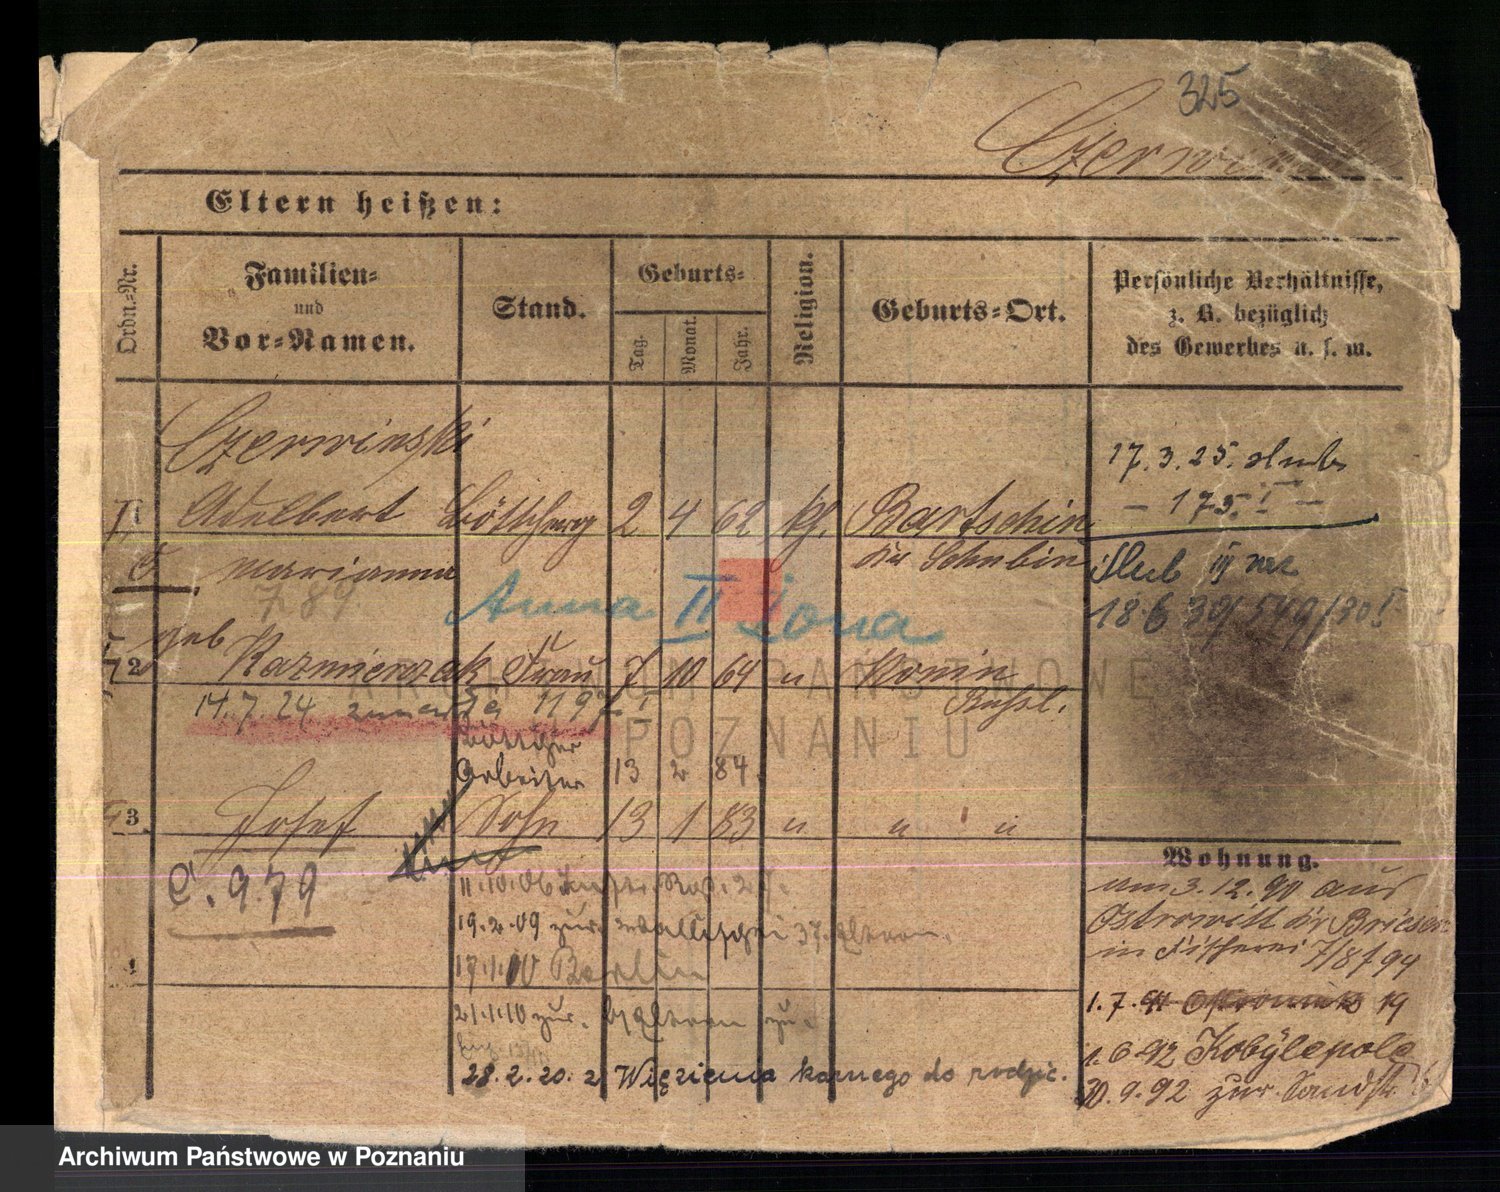 325
Czerwinski
Eltern heißen:
Ordn.-Nr.
Familien-
und
Vor-Namen.
Stand.
Geburts-
Tag.
Monat.
Jahr.
Religion.
Geburts-Ort.
Persönliche Verhältnisse,
z. B. bezüglich
des Gewerbes u. s. w.
Czerwinski
Adelbert 2 4 62 kh. Bartschin
Marianna Schubin
789
Anna II Żona
geb
2 Kazmierczak Frau 7 10 64 u Konin
Russl.
14.7.24 zmarła 1197
Böttcher
Arbeiter 13 2 84.
3. Josef Sohn 13 1 83 u u u
C. 979
11.10.06
19.2.09 zur. Wallischei 37. Eltern.
Berlin
21.1.10 zur. Eltern zu.
28.2.20. z Więzienia karnego do rodzic.
17.3.25. slub
- 175 I -
Slub III raz
18.6 30/549/30 I
Wohnung.
am 3.12.90 aus
Ostrowitt Briesen
in Fischerei 7/8 94
1.7.91 19
1.6.92 Kobylepole
30.9.92 zur. Sandstr
ARCHIWUM PAŃSTWOWE
W POZNANIU
Archiwum Państwowe w Poznaniu